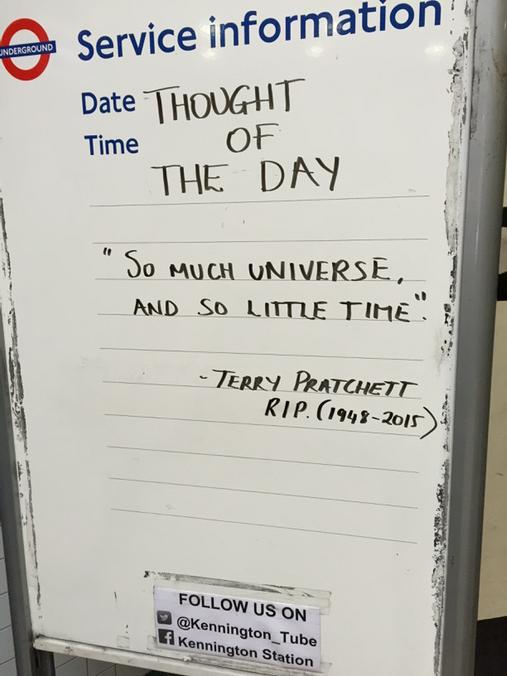 UNDERGROUND
Service information
Date THOUGHT
Time OF
THE DAY
"SO MUCH UNIVERSE,
AND SO LITTLE TIME".
- TERRY PRATCHETT
R.I.P. (1948-2015)
FOLLOW US ON
@Kennington_Tube
Kennington Station